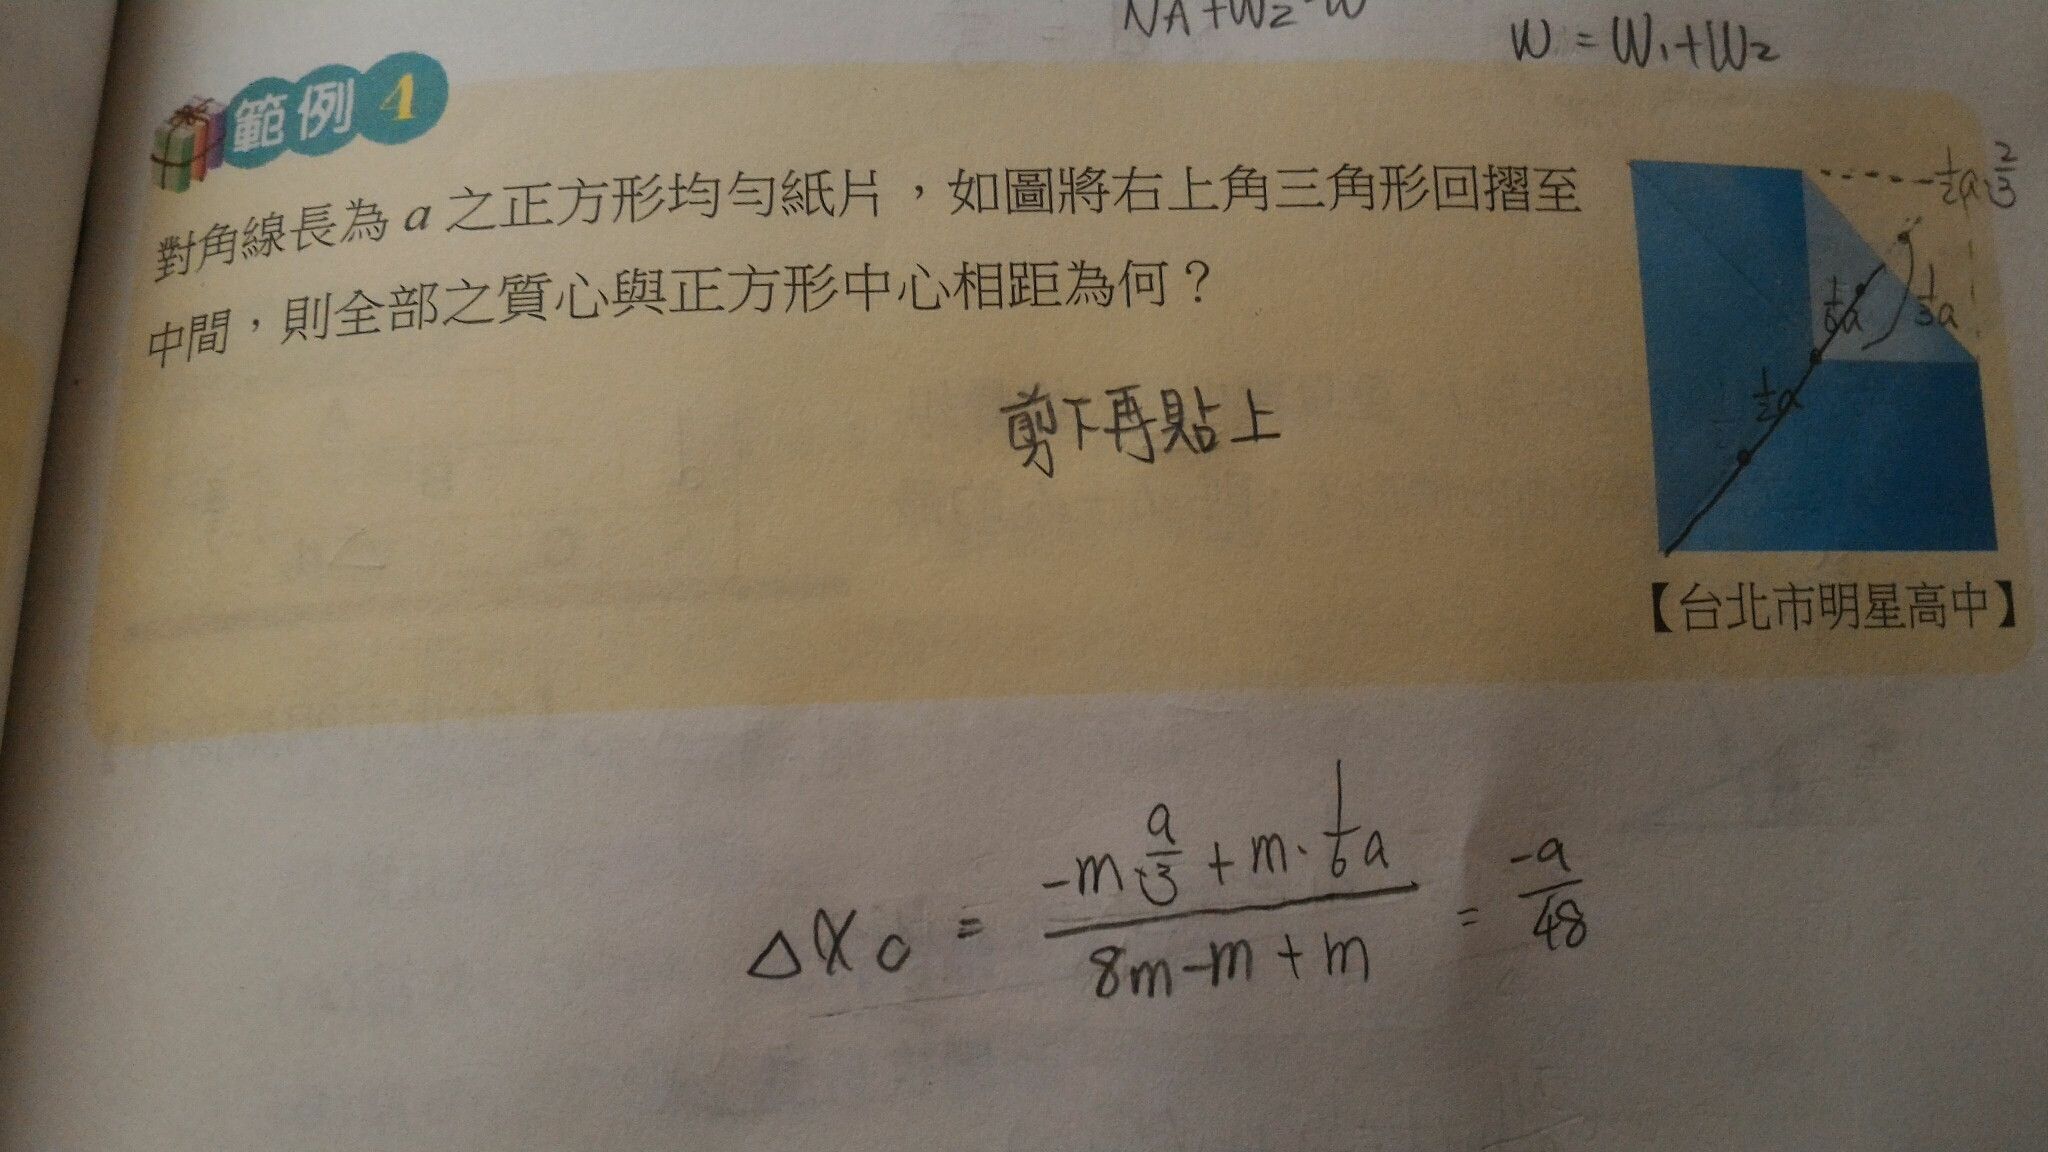 NA+W2 W
W = W1+W2
範例 4
對角線長為 a 之正方形均勻紙片，如圖將右上角三角形回摺至
中間，則全部之質心與正方形中心相距為何？
1/2 a · 2/3
1/6 a
1/3 a
1/2 a
剪下再貼上
【台北市明星高中】
△Xc = (-m · a/3 + m · 1/6 a) / (8m-m+m) = -a/48